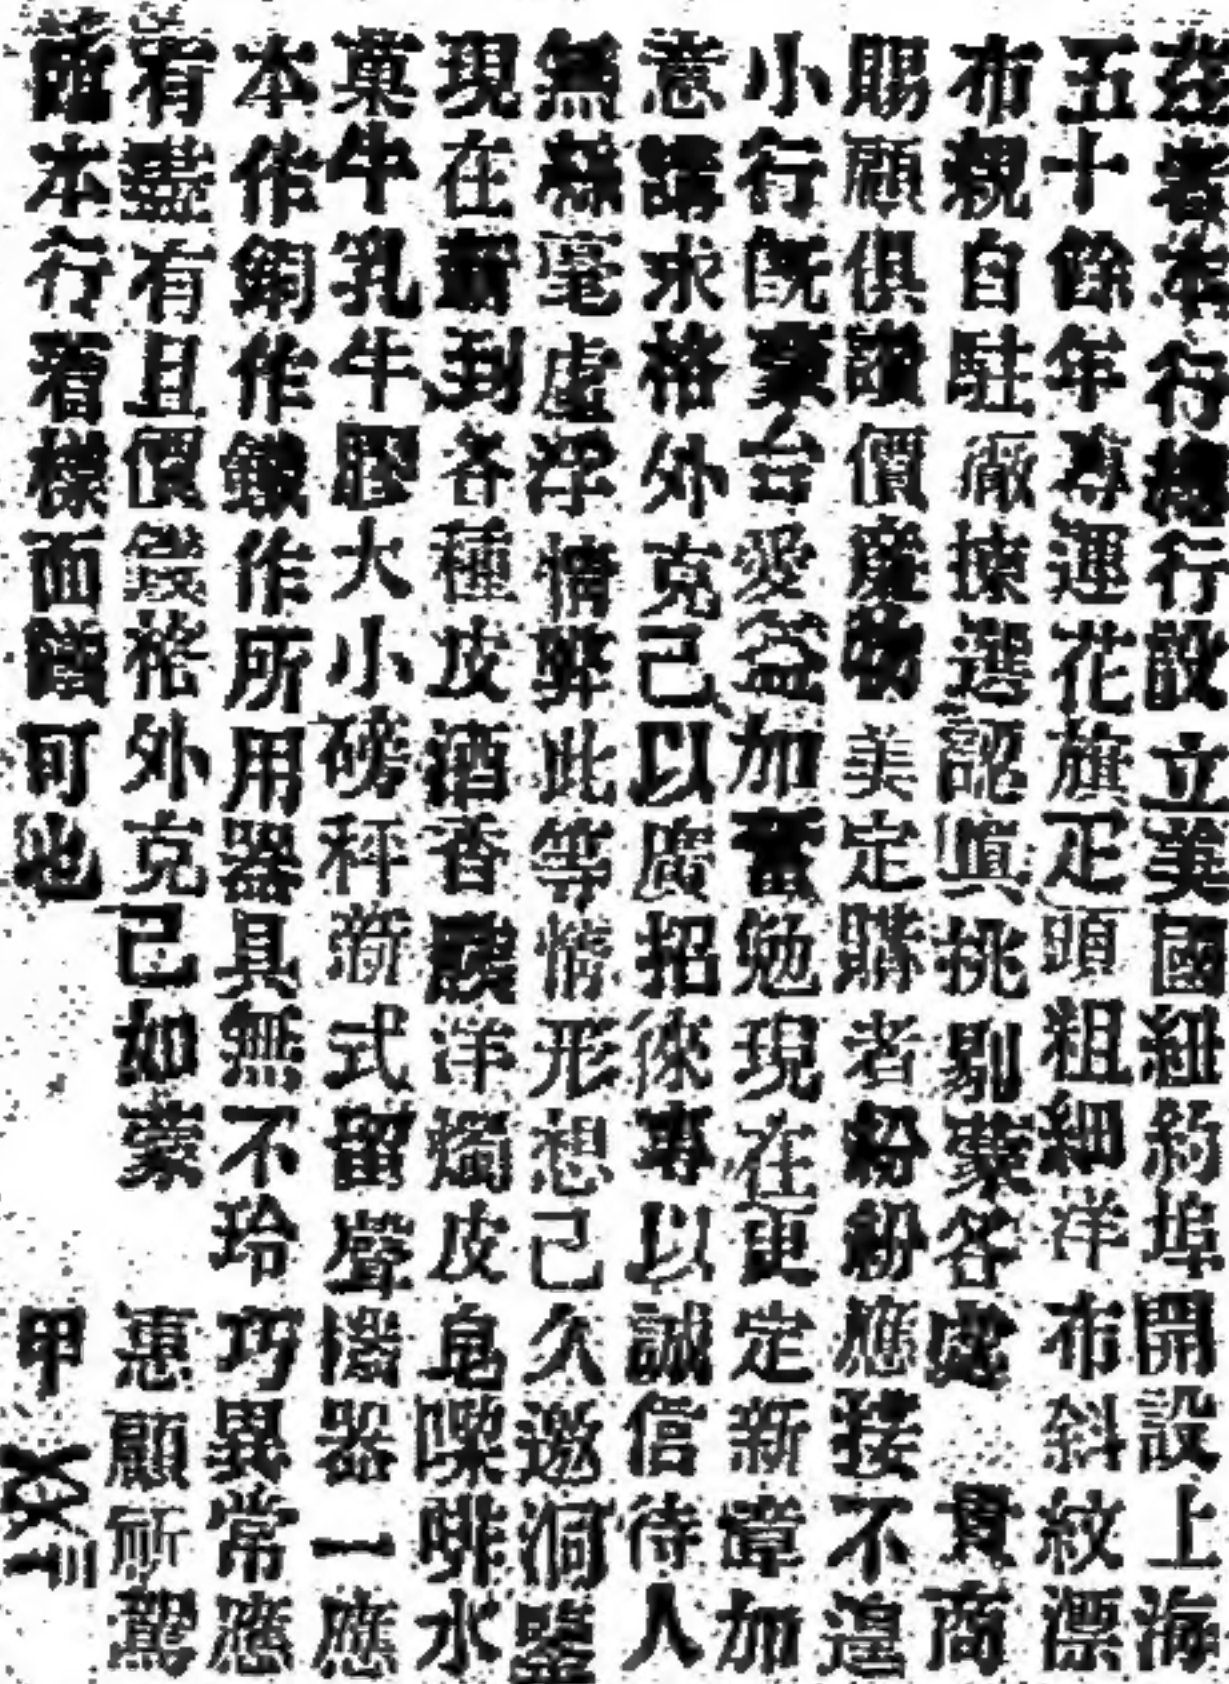 茲者本行總行設立美國紐約埠開設上海
五十餘年專運花旗疋頭粗細洋布斜紋漂
布親自駐廠揀選認眞挑剔蒙各處貴商
賜顧俱讚價廉物美定購者紛紛應接不遑
小行旣蒙台愛益加奮勉現在更定新章加
意講求格外克己以廣招徠專以誠信待人
無絲毫虛浮情弊此等情形想己久邀洞鑒
現在新到各種皮酒香餅洋燭皮皂㗎啡水
菓牛乳牛膠大小磅秤新式留聲機器一應
本作銅作鐵作所用器具無不玲巧異常應
有盡有且價錢格外克己如蒙惠顧祈駕
臨本行看樣面議可也甲